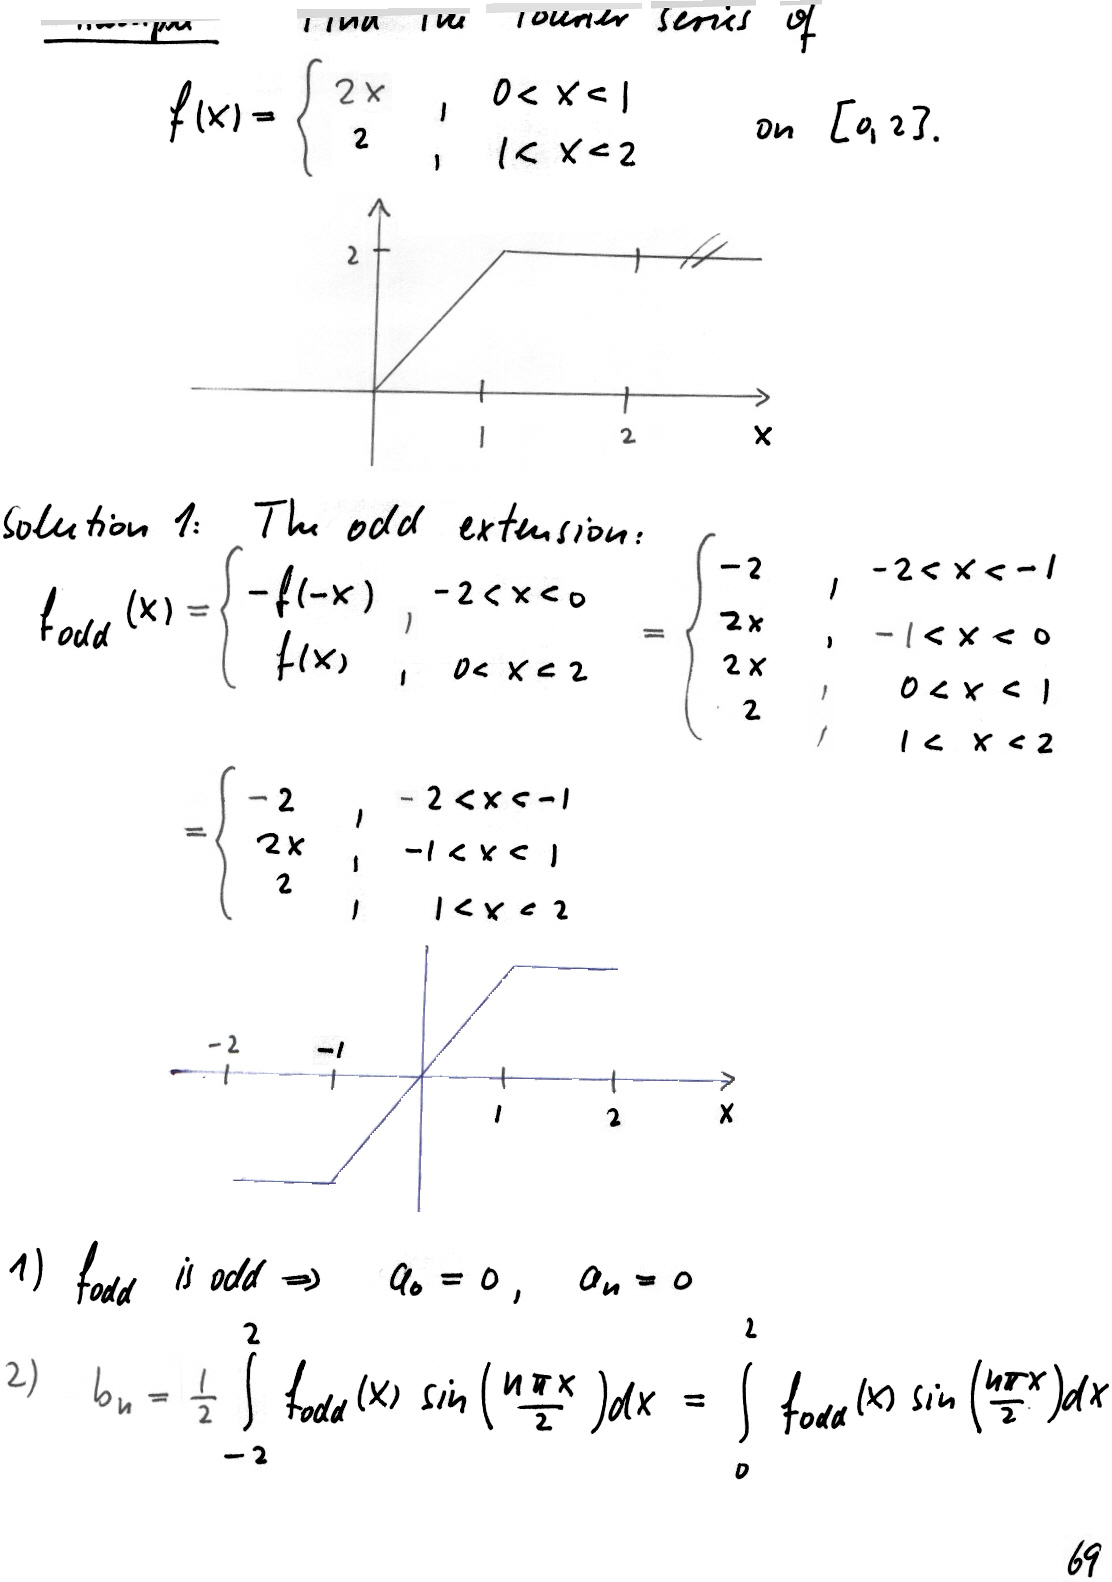 Find the Fourier series of
f(x) = { 2x , 0 < x < 1
2 , 1 < x < 2 on [0, 2].
2
1 2 x
Solution 1: The odd extension:
f_odd (x) = { -f(-x) , -2 < x < 0
f(x) , 0 < x < 2
= { -2 , -2 < x < -1
2x , -1 < x < 0
2x , 0 < x < 1
2 , 1 < x < 2
= { -2 , -2 < x < -1
2x , -1 < x < 1
2 , 1 < x < 2
-2 -1
1 2 x
1) f_odd is odd ⇒ a_0 = 0, a_n = 0
2) b_n = 1/2 ∫_{-2}^{2} f_odd (x) sin (nπx/2) dx = ∫_0^2 f_odd (x) sin (nπx/2) dx
69